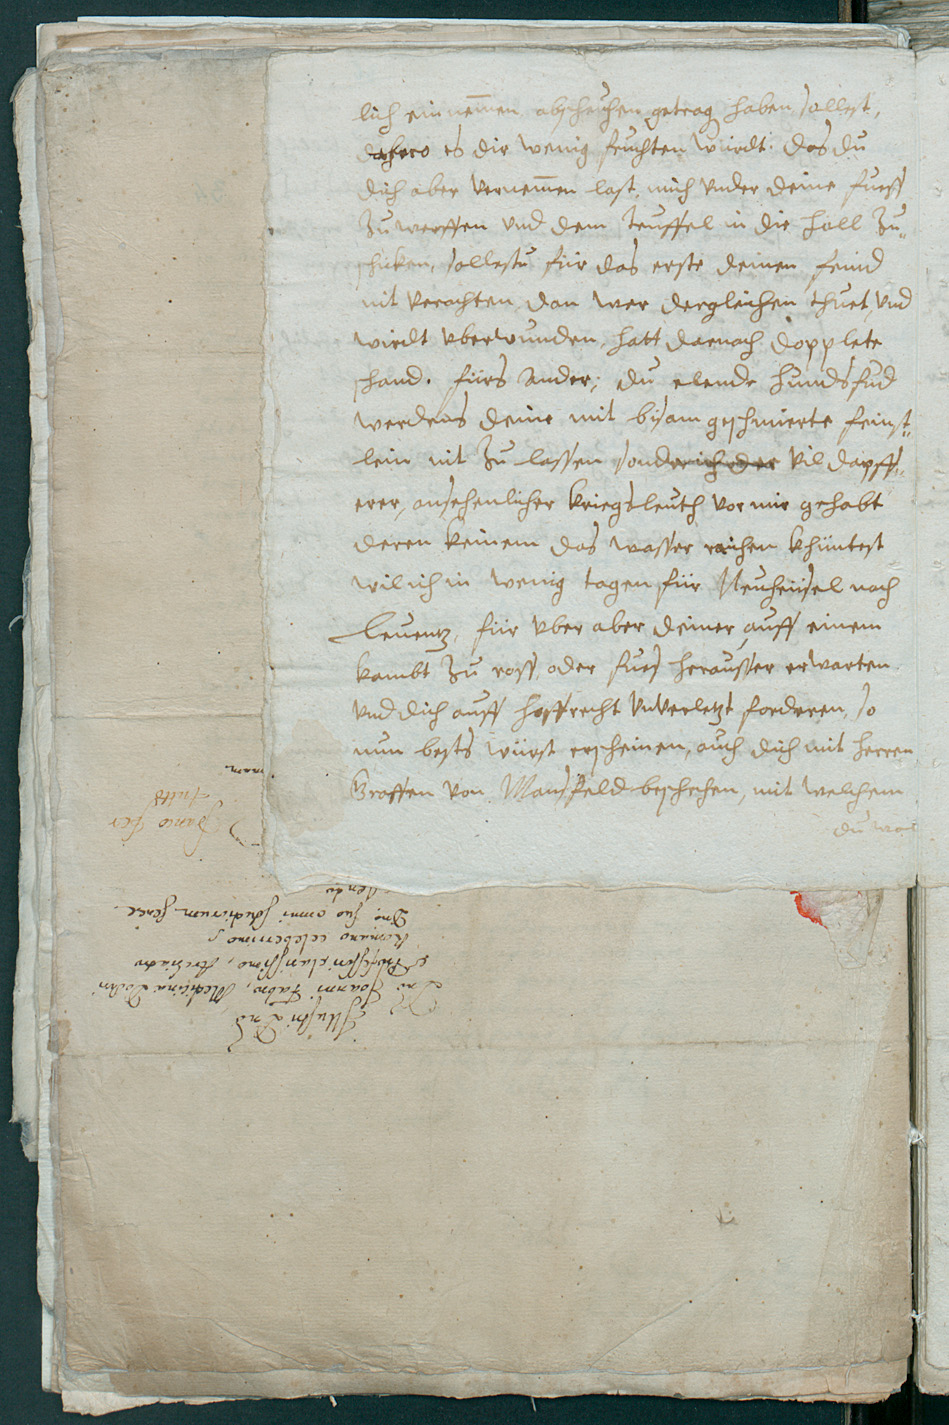 lich einnem̄en abscheuchen getrag haben sollest,
dahero es dir wenig fruchten würdt: das du
dich aber vernem̄en last, mich vnder deine fuess
Zu werffen vnd dem teuffel in die holl Zu„
schicken, sollestu für das erste deinen feind
nit verachten, dan wer dergleichen thuet, vnd
wirdt vberwunden, hatt darnach dopplete
schand. fürs Ander, du elende hundsfud
werdens deine mit bisam geschmierte feust„
lein nit Zu lassen, vil dapff„
erer, ansehenlicher kriegsleuth vor mir gehabt
deren keinem das wasser raichen khüntest
wil ich in wenig tagen für Neuheüsel nach
Leuentz, für vber aber deiner auff einem
kambt Zu ross oder fuess herausser erwarten
vnd dich auff hoffrecht vnverletzt forderen, so
nun bests würst erscheinen, auch dich mit herren
Graffen von Mansfeld beschehen, mit welchem
du
Illustri Dno
Dno Joanni Fabro, Medicinæ Doctori
Professori clarissimo, 
Romano celeberrimo,
Dno suo omni